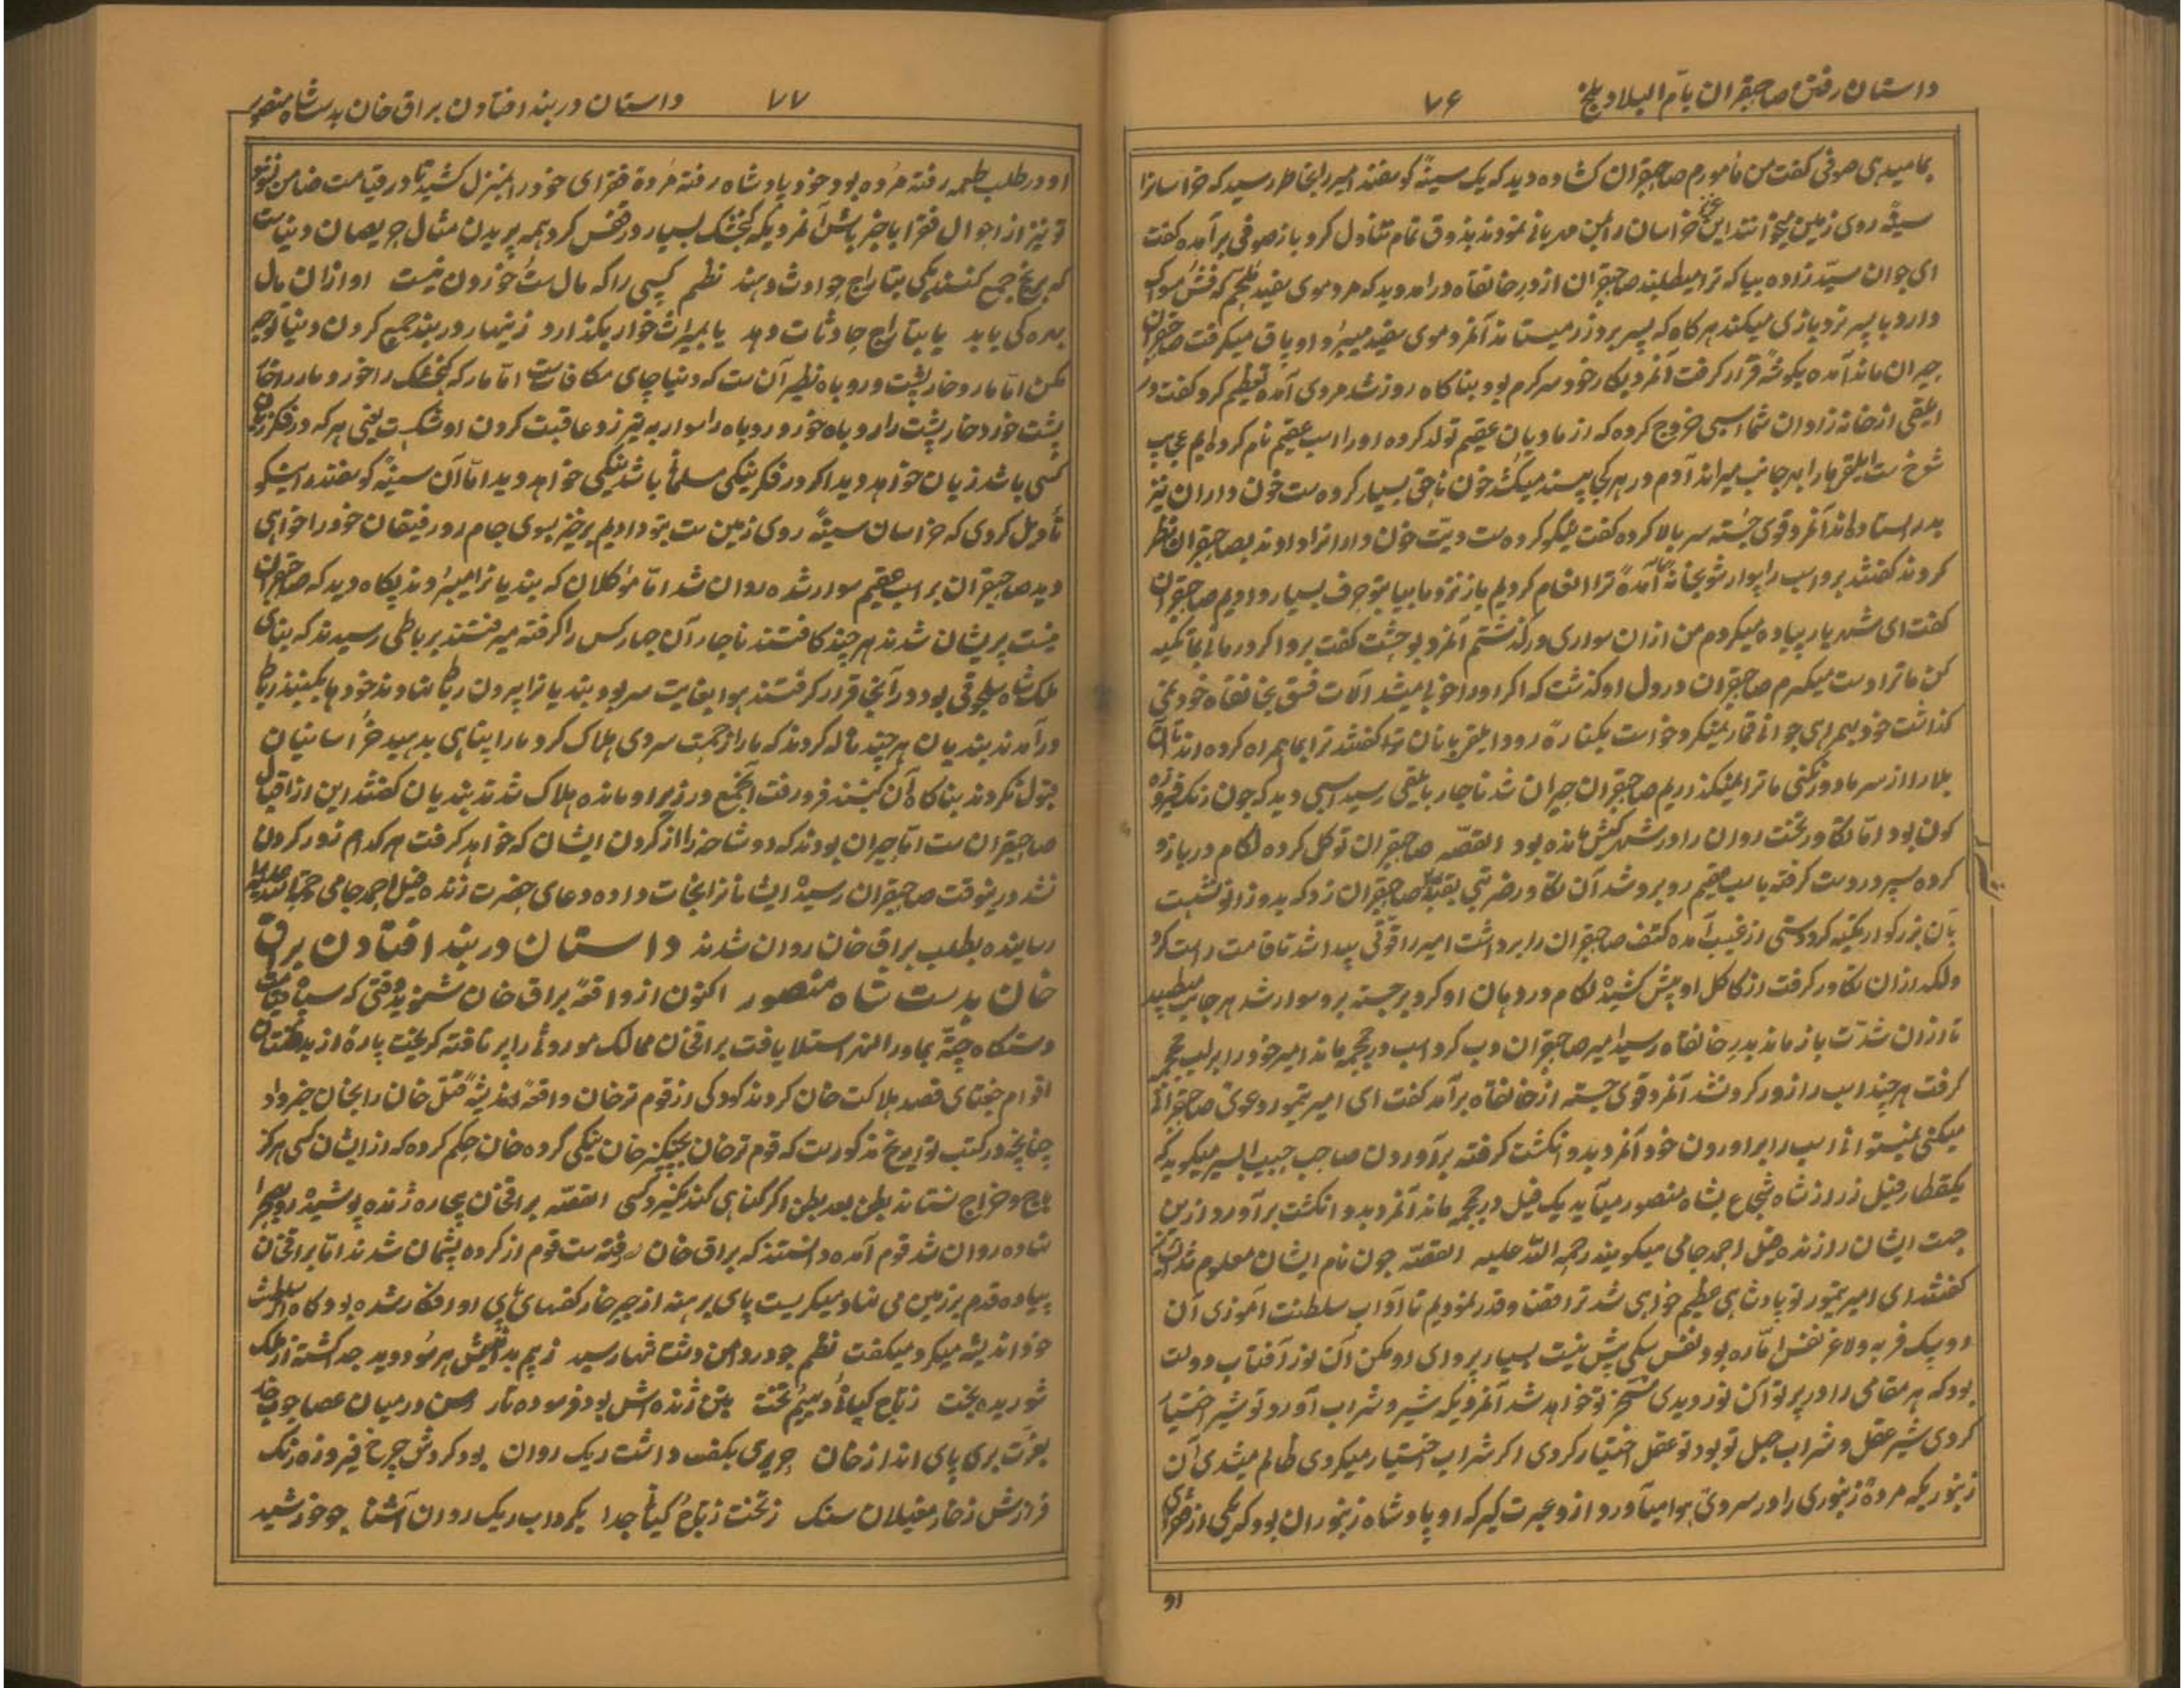 داستان رفتن صاحبقران بامّ البلاد بلخ
۷۶
بمامیدهی صوفی کفت من مأمورم صاحبقران کشاده دید که یک سینهٔ کوسفند امیر را بخاطر رسید که خراسانرا
سینهٔ روی زمین میخوانند این خراسان را بمن مهربانی نمودند بذوق تمام تناول کرد باز صوفی برآمده کفت
ای جوان سیّد زاده بیا که ترا میطلبند صاحبقران از در خانقاه درامد دید که مرد موی سفید
دارد با پسر نرد بازی میکند هر کاه که پسر برد زر میستاند آنمرد موی سفید میبرد او پاق میکرفت صاحبقران
حیران ماند آمده بکوشهٔ قرار کرفت آنمرد بکار خود سرکرم بود بناکاه روز شد مردی آمده تعظیم کرد کفت در
ایلقی از خانه زادان شما اسبی خروج کرده که از مادیان عقیم تولد کرده او را اسب عقیم نام کرده ایم عجایب
شوخ ست ایلقی ما را بهر جانب میراند آدم در هر کجا بیند میکشد خون ناحق بسیار کرده ست خون داران نیز
بدر استاده اند آنمرد قوی جثّه سر بالا کرده کفت نیکو کرده ست دیّت خون دارانرا دادند بصاحبقران نظر
کردند کفتند برو اسب را سوار شو بخانهٔ ما آمدهٔ ترا انعام کردیم باز نزد ما بیا بتو حرف بسیار داریم صاحبقران
کفت ای شهریار پیاده میکردم من ازان سواری درکذشتم آنمرد بوحشت کفت برو اکر درمانی بما تکیه
کن ما ترا دست میکیرم صاحبقران در دل او کذشت که اکر او را خوبی میشد آلات فسق بخانقاه خود نمی
کذاشت خود بهمراهی جوانی قمار نمیکرد خواست بکنارهٔ رود ایلقی بانان ترا کفتند ترا بما همراه کرده اند تا آن
بلا را از سر ما دور کنی ما ترا نمیکذاریم صاحبقران حیران شد ناچار بایلقی رسید اسبی دید که چون زنک فیروزه
کون بود امّا تکاور تخت روان را در شهر کش مانده بود القصّه صاحبقران توکل کرده لکام در بازو
کرده سپر در دست کرفته با اسب عقیم روبرو شد آن تکاور ضربتی بقبّهٔ صاحبقران زد که بدو زانو نشست
بان بزرکوار تکیه کرد دستی از غیب آمده کتف صاحبقران را برداشت امیر را قوّتی پیدا شد تا قامت راست کرد
ولکد ازان تکاور کرفت از کاکل او پیش کشید لکام در دهان او کرد برجسته برو سوار شد هر جانب میطپید
تا ازان شدّت باز ماند بدر خانقاه رسید امیر صاحبقران دب کرد اسب در جمجمه ماند امیر خود را بر لب جمجمه
کرفت هر چند اسب را زور کرد نشد آنمرد قوی جسته از خانقاه برآمد کفت ای امیر تیمور دعوی صاحبقرانی
میکنی نمیتوانی اسب را براوردن خود آنمرد بدو انکشت کرفته برآوردن صاحب حبیب السیر میکوید که
یکقطار فیل زر از شاه شجاع بشاه منصور میآید یک فیل در جمجمه ماند آنمرد بدو انکشت برآورد ازین
جهت ایشان را زنده فیل احمد جامی میکویند رحمة اللّه علیه القصّه چون نام ایشان معلوم شد
کفتند ای امیر تیمور تو پادشاهی عظیم خواهی شد ترا فقر نمودیم تا آداب سلطنت آموزی آن
دو یک فربه و لاغر نفس امّاره بود نفس سکی پیش نیست بسیار پروای او مکن آن نور آفتاب دولت
بود که هر مقامی را در پرتو آن نور دیدی مسخّر تو خواهد شد آنمردیکه شیر و شراب آورد تو شیر اختیار
کردی شیر عقل و شراب جهل تو بود تو عقل اختیار کردی اکر شراب اختیار میکردی ظالم میشدی آن
زنبوریکه مردهٔ زنبوری را در سردی هوا میآورد ازو عبرت کیر که او پادشاه زنبوران بود که یکی از فقرای
او
داستان در بند افتادن براق خان بدست شاه منصور
۷۷
او در طلب طعمه رفته مرده بود خود پادشاه رفته مردهٔ فقرای خود را بمنزل کشید تا در قیامت ضامن نشود
تو نیز از احوال فقرا باخبر باش آنمردیکه کنجشک بسیار در قفس کرد همه پریدن مثال حریصان دنیاست
که برنج جمع کنند یکی بتاراج حوادث دهند نظم کسی را که مال ست خوردن نیست او ازان مال
بهره کی یابد یا بتاراج حادثات دهد یا بمیراث خوار بکذارد زینهار در بند جمع کردن دنیا توجه
مکن امّا مار و خارپشت و روباه نظیر آن ست که دنیا جای مکافات ست امّا مار که کنجشک را خورد مار را خار
پشت خورد خارپشت را روباه خورد روباه را سوار به تیر زد عاقبت کردن او شکست یعنی هر که در فکر زیان
کسی باشد زیان خواهد دید اکر در فکر نیکی مسلمانی باشد نیکی خواهد دید امّا آن سینهٔ کوسفند را نیکو
تأویل کردی که خراسان سینهٔ روی زمین ست بتو دادیم برخیز بسوی جام رو رفیقان خود را خواهی
دید صاحبقران بر اسب عقیم سوار شده روان شد امّا مؤکلان که بندیانرا میبردند پکاه دید که صاحبقران
نیست پریشان شدند هر چند کافتند ناچار آن چهار کس را کرفته میرفتند برباطی رسیدند که بنای
ملکشاه سلجوقی بود در آنجا قرار کرفتند هوا بغایت سرد بود بندیانرا بیرون رباط نهادند خودها بکنبذ رباط
درآمدند بندیان هر چند ناله کردند که ما را از جهت سردی هلاک کرد ما را پناهی بدهید خراسانیان
قبول نکردند بناکاه آن کنبند فرو رفت آنجمع در زیر او مانده هلاک شدند بندیان کفتند این از اقبال
صاحبقران ست امّا حیران بودند که دوشاخه را از کردن ایشان که خواهد کرفت هر کدام زور کردن
نشد درینوقت صاحبقران رسیده ایشانرا نجات داده دعای حضرت زنده فیل احمد جامی رحمة اللّه علیه
رسانیده بطلب براق خان روان شدند داستان در بند افتادن براق
خان بدست شاه منصور اکنون از واقعهٔ براق خان شنوید وقتی که سپاه
دستکاه جتّه بماورالنهر استلا یافت براقخان ممالک موروثی را بر تافته کریخت پارهٔ از
اقوام جغتای قصد هلاکت خان کردند کودکی از قوم ترخان واقعهٔ اندیشهٔ قتل خان را بخان خبر داد
چنانچه در کتب تواریخ مذکورست که قوم ترخان بچنکیز خان نیکی کرده خان حکم کرده که از ایشان کسی هرکز
باج و خراج نستاند بطن بعد بطن اکر کناهی کند نکیرد کسی القصّه براقخان بیچاره ژنده پوشیده رو بصحرا
نهاده روان شد قوم آمده دانستند که براق خان رفته ست قوم از کرده پشیمان شدند امّا براقخان
پیاده قدم بر زمین می نهاد میکریست پای برهنه از جبر خار کفهای پای او افکار شده بود کاه از سلطنت
خود اندیشه میکرد میکفت نظم چو در دامن دشت تنها رسید ز بیم بداندیش هر سو دوید جدا کشته از ملک
شوریده بخت ز تاج کیانی و دیهیم تخت بتن ژنده اش بود فرسوده تار رسن در میان عصا چوب خار
بعزّت بری پای انداز خان حریری بکف داشت ریک روان بود کردش چرخ فیروزه رنک
فرازش ز خار مغیلان سنک ز تخت ز تاج کیانی جدا بکرداب ریک روان آشنا چو خورشید